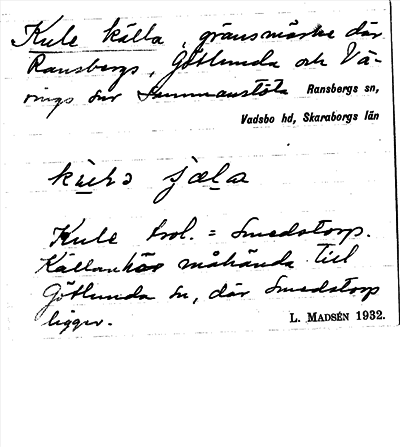 Kule källa, gränsmärke där
Ransbergs, Götlunda och Vä-
rings snr sammanstöta Ransbergs sn,
Vadsbo hd, Skaraborgs län
Kule trol. = Smedstorp.
Källan hör måhända till
Götlunda sn, där Smedstorp
ligger.
L. MADSÉN 1932.